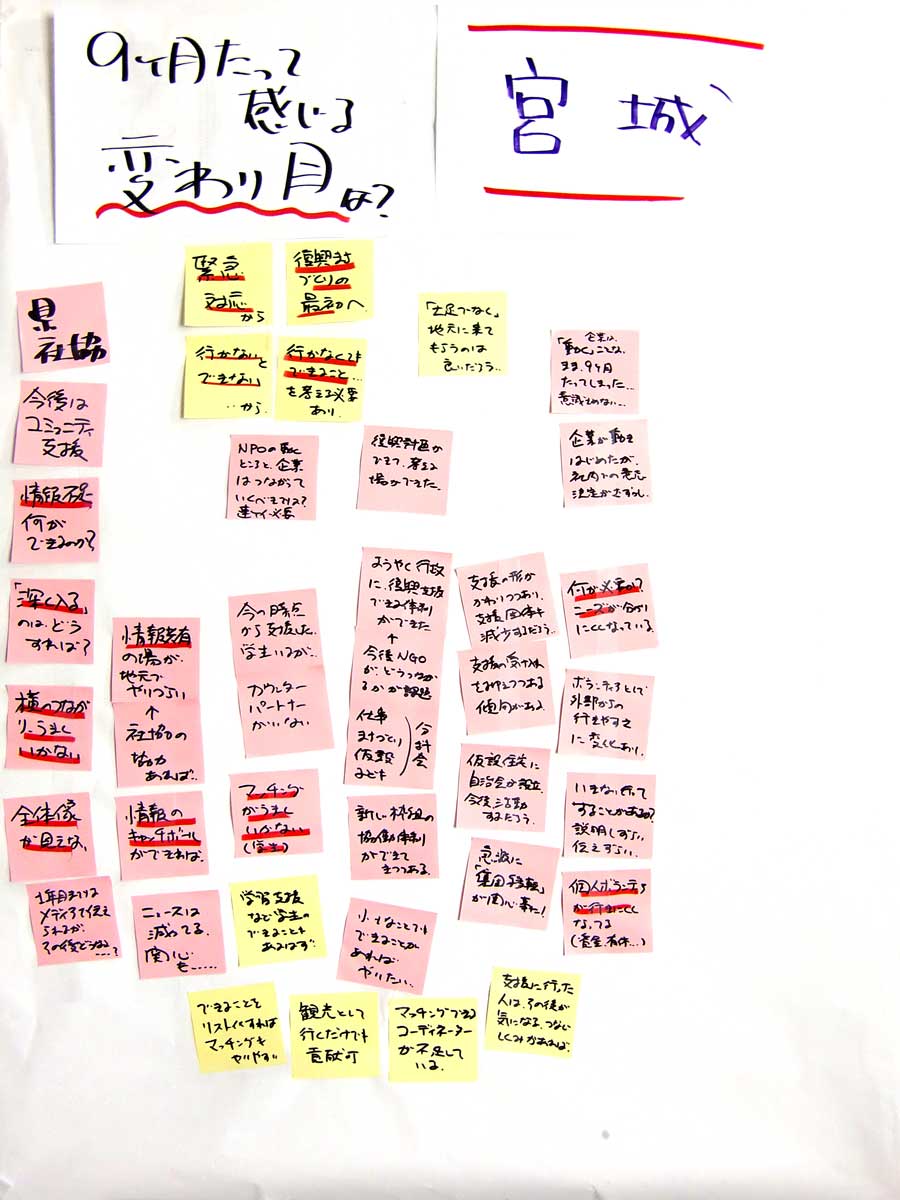 9ヶ月たって
感じる
変わり目は?
宮城
緊急
対応
から
復興まち
づくりの
最初へ
行かないと
できない
…から
行かなくても
できること…
を考える必要
あり
「土足でなく」
地元に来て
もらうのは
良いだろう…
企業は、
「動く」ことなく
まま、9ヶ月
たってしまった…
県
社協
今後は
コミュニティ
支援
情報不足
何が
できるのか?
「深く入る」
のは、どう
すれば?
横のつなが
り、うまく
いかない
全体像
が見えない
1年目までは
メディアで伝え
られるが、
その後どうなる……?
NPOの動く
ところと、企業
はつながって
いくべきでは?
復興計画が
できて、考える
場ができた。
企業が動き
はじめたが、
社内での意志
決定がむずかし
情報共有
の場が、
地元で
やりづらい
↑
社協の
協力
あれば…
情報の
キャッチボール
ができれば、
ニュースは
減ってる、
関心
も……
今の時点
から支援した
学生いるが…
カウンター
パートナー
がいない
マッチング
がうまく
いかない
(学生)
学習支援
など学生の
できることも
あるはず
ようやく行政
に、復興支援
できる体制
ができた
↑
今後NGO
が、どうつなが
るかが課題
仕事
まちづくり
仮設
なども
分科会
新しい枠組の
協働体制
ができて
きつつある。
小さなことでも
できることが
あれば
やりたい…
支援の形が
かわりつつあり、
支援団体も
減少するだろう…
支援の
傾向がある
仮設住宅に
自治会が設立
今後、活動
するだろう。
急激に
「集団移転」
が関心事に!
何が必要か?
ニーズが分かり
にくくなっている。
ボランティアとして
外部からの
行きやすさ
に変化あり。
いきない行って
することがあるか?
説明しづらい
伝えずらい、
個人ボランティア
が行きにくく
なってる
できることを
リスト化すれば
マッチングも
やりやすい
観光として
行くだけでも
貢献可
マッチングできる
コーディネーター
が不足して
いる。
支援に行った
人は、その後が
気になる、つなぐ
しくみがあれば、